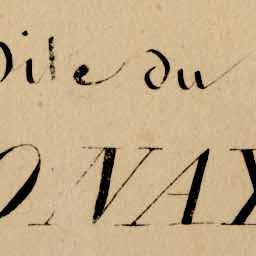 Dile du
ONAX